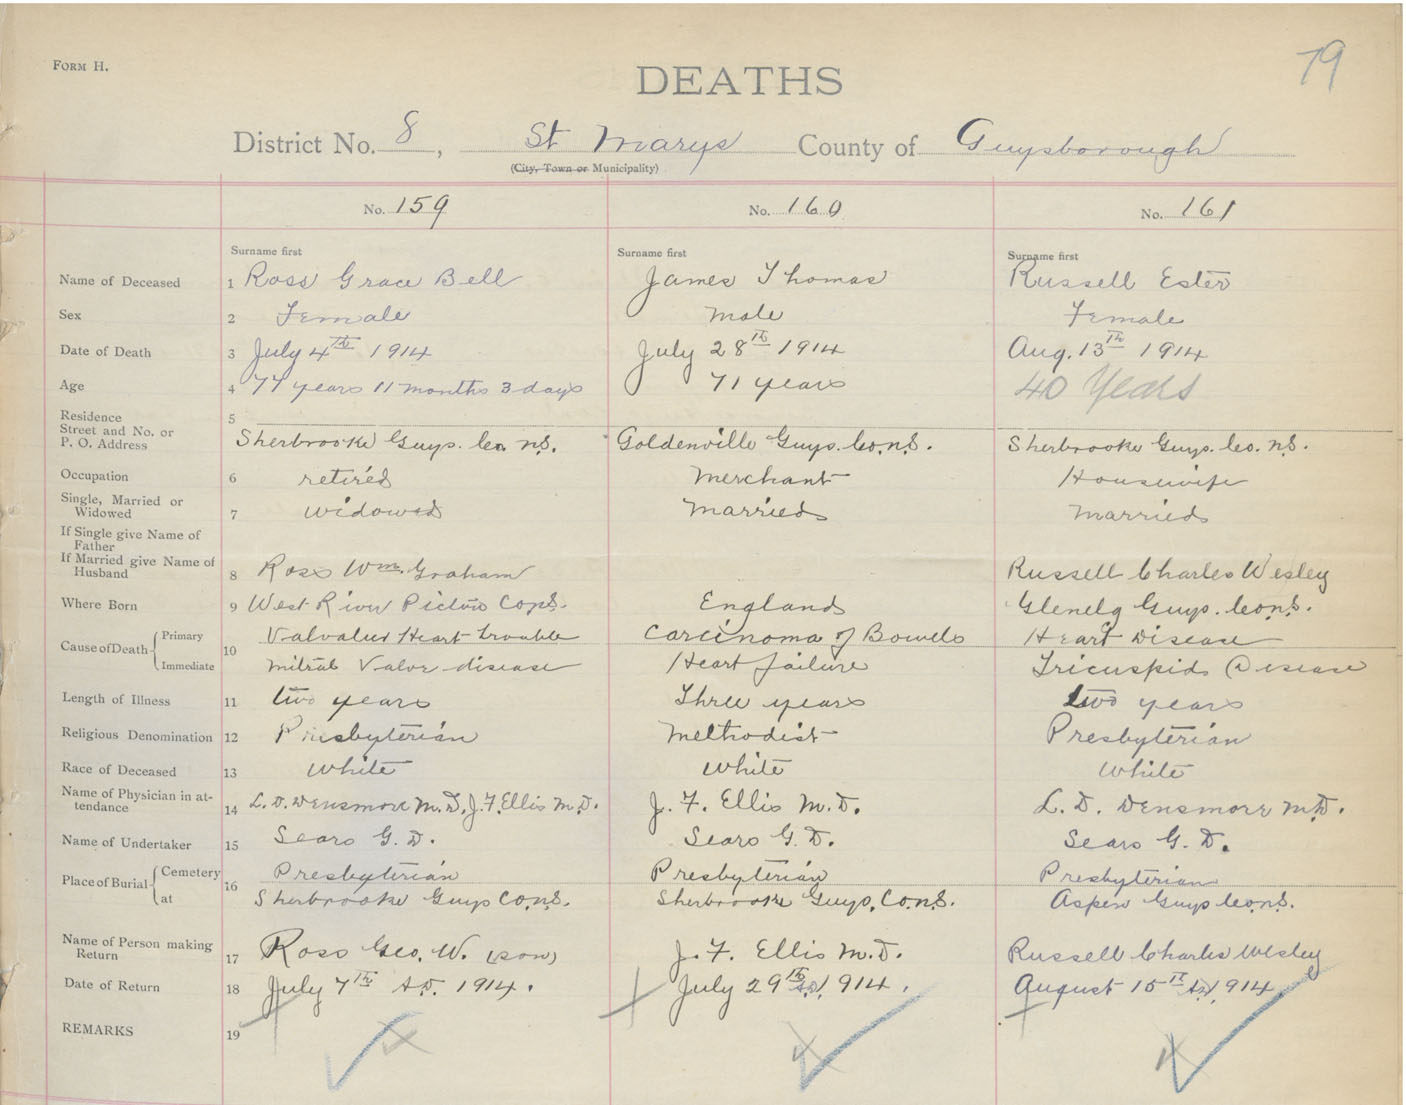 79
FORM H.
DEATHS
District No. 8, St Marys County of Guysborough
(City, Town or Municipality)
No. 159 No. 160 No. 161
Surname first Surname first Surname first
Name of Deceased 1 Ross Grace Bell James Thomas Russell Ester
Sex 2 Female Male Female
Date of Death 3 July 4th 1914 July 28th 1914 Aug. 13th 1914
Age 4 77 years 11 months 3 days 71 years 40 Years
Residence 5
Street and No. or
P. O. Address Sherbrooke Guys. Co. N.S. Goldenville Guys. Co. N.S. Sherbrooke Guys. Co. N.S.
Occupation 6 retired Merchant Housewife
Single, Married or
Widowed 7 widowed Married Married
If Single give Name of
Father
If Married give Name of
Husband 8 Ross Wm. Graham Russell Charles Wesley
Where Born 9 West River Pictou Co N.S. England Glenelg Guys. Co N.S.
Cause of Death Primary 10 Valvalur Heart trouble Carcinoma of Bowels Heart Disease
Immediate Mitral Valve disease Heart failure Tricuspid Disease
Length of Illness 11 two years Three years two years
Religious Denomination 12 Presbyterian Methodist Presbyterian
Race of Deceased 13 White White White
Name of Physician in at-
tendance 14 L. D. Densmore M.D. J. F. Ellis M.D. J. F. Ellis M.D. L. D. Densmore M.D.
Name of Undertaker 15 Sears G. D. Sears G. D. Sears G. D.
Place of Burial Cemetery 16 Presbyterian Presbyterian Presbyterian
at Sherbrooke Guys Co N.S. Sherbrooke Guys. Co. N.S. Aspen Guys Co N.S.
Name of Person making
Return 17 Ross Geo. W. (son) J. F. Ellis M.D. Russell Charles Wesley
Date of Return 18 July 7th A.D. 1914. July 29th A.D. 1914. August 15th A.D. 1914
REMARKS 19